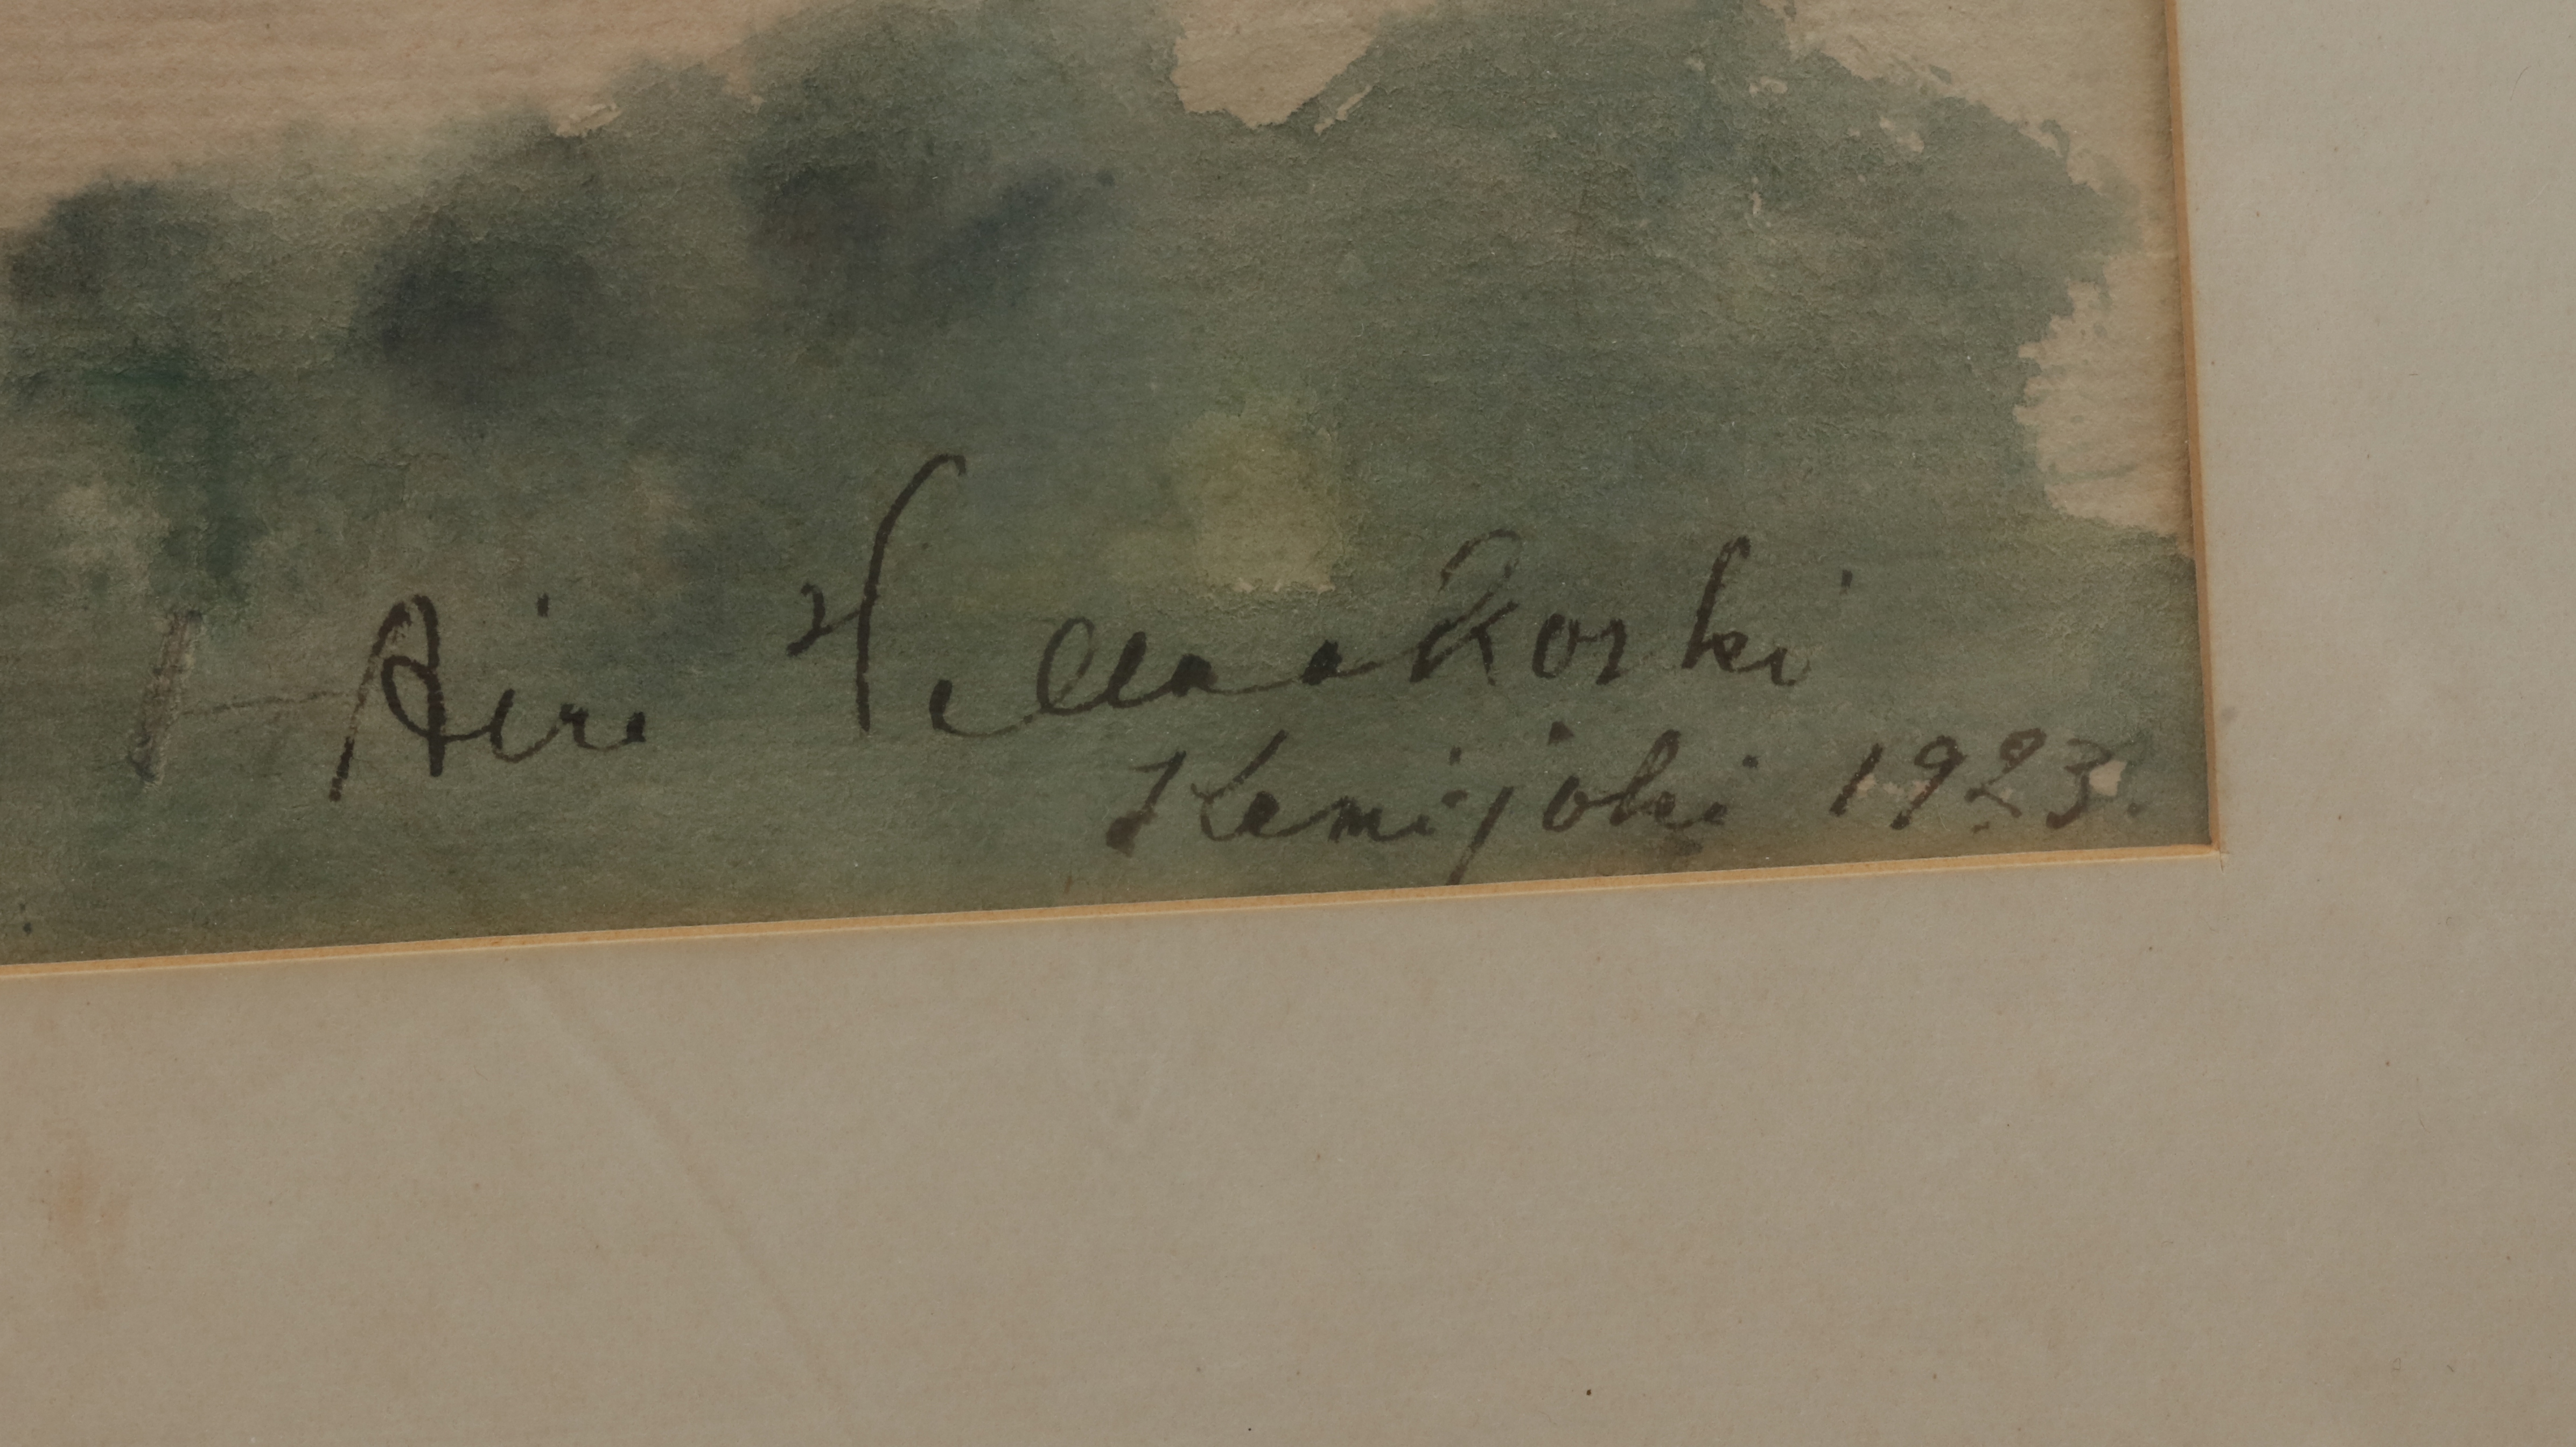 Aire Hellaakoski
Kemijoki 1923.